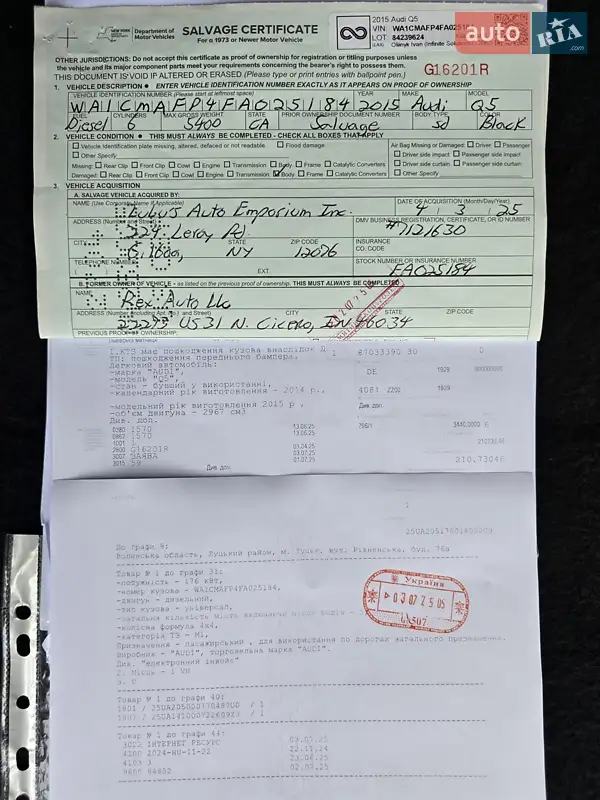 NEW YORK STATE
Department of Motor Vehicles
SALVAGE CERTIFICATE
For a 1973 or Newer Motor Vehicle
2015 Audi Q5
VIN: WA1CMAFP4FA025184
LOT: 84239624
auto RIA .com
OTHER JURISDICTIONS: Do not accept this certificate as proof of ownership for registration or titling purposes unless
the vehicle and its major component parts meet your requirements concerning the bearer's right to possess them.
THIS DOCUMENT IS VOID IF ALTERED OR ERASED (Please type or print entries with ballpoint pen.)
G16201R
1. VEHICLE DESCRIPTION • ENTER VEHICLE IDENTIFICATION NUMBER EXACTLY AS IT APPEARS ON PROOF OF OWNERSHIP
VEHICLE IDENTIFICATION NUMBER (Please start at leftmost space) YEAR MAKE MODEL
WA1CMAFP4FA025184 2015 Audi Q5
FUEL CYLINDERS MAX GROSS WEIGHT STATE PRIOR OWNERSHIP DOCUMENT NUMBER BODY TYPE COLOR
Diesel 6 5400 GA Salvage sd Black
2. VEHICLE CONDITION • THIS MUST ALWAYS BE COMPLETED - CHECK ALL BOXES THAT APPLY
Vehicle Identification plate missing, altered, defaced or not readable Flood damage
Air Bag Missing or Damaged: Driver Passenger
Other Specify
Driver side impact Passenger side impact
Missing: Rear Clip Front Clip Cowl Engine Transmission Body Frame Catalytic Converters
Driver side curtain Passenger side curtain
Damaged: Rear Clip Front Clip Cowl Engine Transmission Body Frame Catalytic Converters
Other Specify
3. VEHICLE ACQUISITION
A. SALVAGE VEHICLE ACQUIRED BY:
NAME (Use Corporate Name if Applicable)
Auto Emporium Inc.
DATE OF ACQUISITION (Month/Day/Year)
4 3 25
ADDRESS (Number and Street)
224 Leroy Rd.
DMV BUSINESS REGISTRATION, CERTIFICATE, OR ID NUMBER
#7121630
CITY STATE ZIP CODE
Gilboa, NY 12076
INSURANCE CO. CODE
TELEPHONE NUMBER
( ) EXT.
STOCK NUMBER OR INSURANCE NUMBER
FA025184
B. FORMER OWNER OF VEHICLE - as listed on the previous proof of ownership. THIS MUST ALWAYS BE COMPLETED
NAME
Rex Auto Llc
ADDRESS (Number and Street) CITY STATE ZIP CODE
22273 US 31 N. Cicero, IN 46034
PREVIOUS PROOF OF OWNERSHIP:
1.КТЗ має пошкодження кузова внаслідок Д
ТП: пошкодження переднього бампера.
Легковий автомобіль:
-марка "AUDI",
-модель "Q5",
-стан - бувший у використанні,
-календарний рік виготовлення - 2014 р.,
-модельний рік виготовлення 2015 р.,
-об'єм двигуна - 2967 см3
Див. доп.
1 87033390 30 0
DE 1929
4081 2200 1939
Див. доп.
3440.0000
0380 1570 13.06.25
0862 1570 13.06.25
1001 1
2800 G16201R 03.04.25
3007 ЗАЯВА 03.07.25
3015 59 01.07.25
Див. доп.
210.73046
1
До графи 8:
Волинська область, Луцький район, м. Луцьк, вул. Рівненська, буд. 76а
Товар № 1 до графи 31:
-потужність - 176 кВт,
-номер кузова - WA1CMAFP4FA025184,
-двигун - дизельний,
-тип кузова - універсал,
-загальна кількість місць включаючи місце водія -
-колісна формула 4х4,
-категорія ТЗ - М1,
Призначення - пасажирський, для використання по дорогах загального призначення.
Виробник - "AUDI", торговельна марка "AUDI".
Див. "електронний інвойс"
2. Місць - 1
3. 0
Україна
03 07 25 05
Товар № 1 до графи 40:
Товар № 1 до графи 44:
ІНТЕРНЕТ РЕСУРС 03.07.25
22.11.24